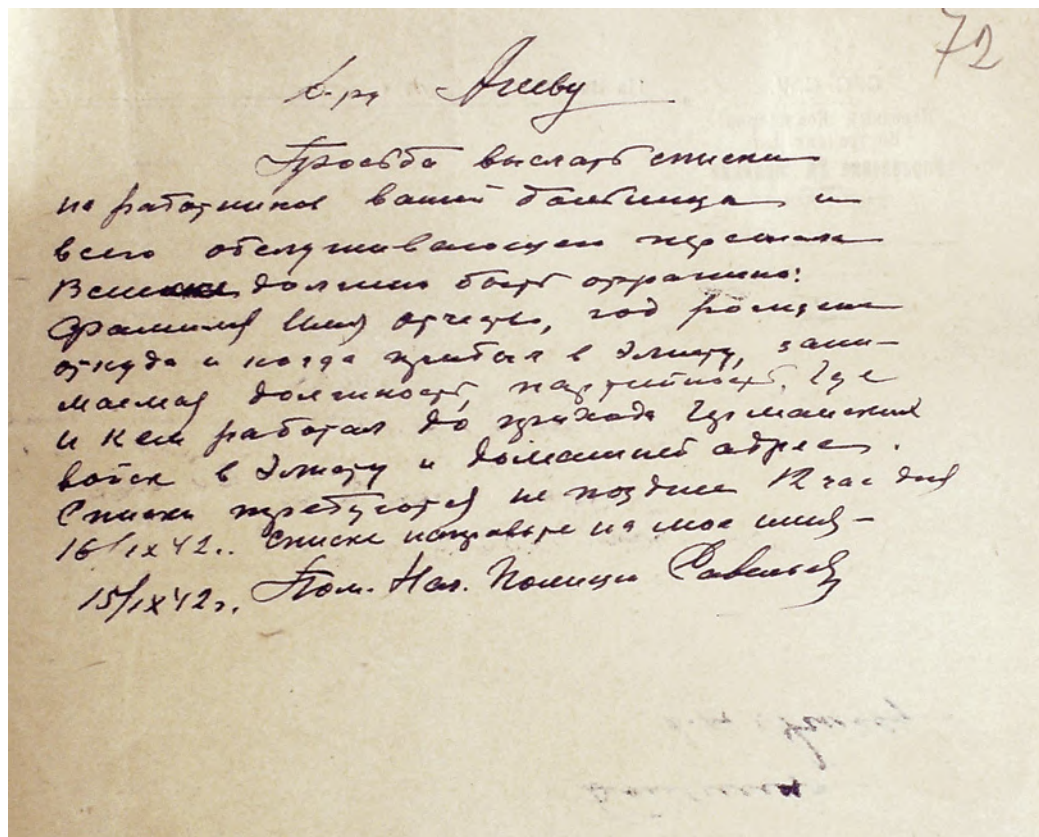 72
Д-ру Агееву
Просьба выслать списки
на работников вашей больницы и
всего обслуживающего персонала
В списке должно быть отражено:
Фамилия Имя отчество, год рождения
откуда и когда прибыл в Элисту, зани-
маемая должность, партийность, где
и кем работал до прихода Германских
войск в Элисту и домашний адрес.
Списки требуются не позднее 12 час дня
16/IX 42.. списки направьте на мое имя –
15/IX 42 г. Пом. Нач. Полиции Савельев